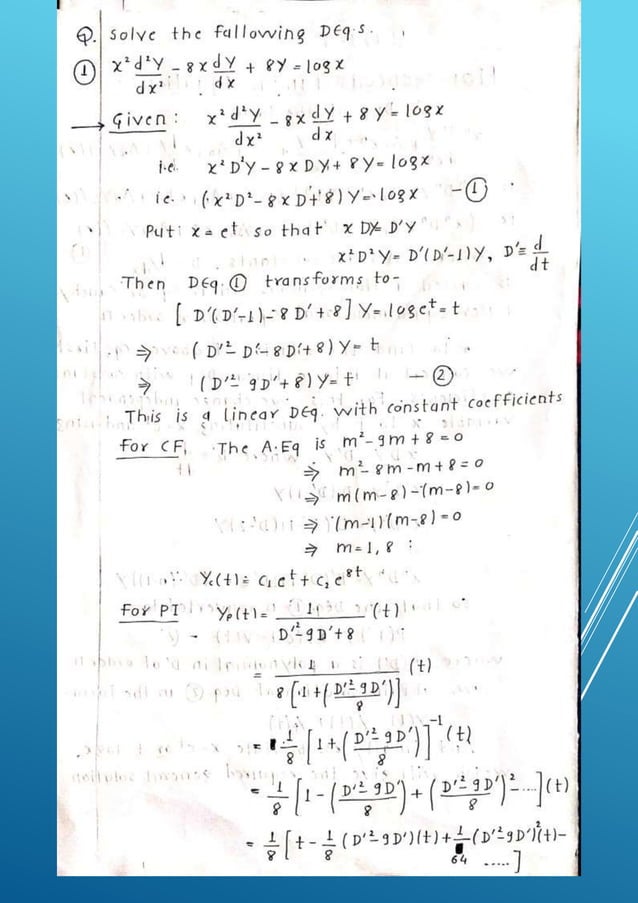 Q. Solve the following DEq.s.
① x² d²y/dx² - 8x dy/dx + 8y = log x
→ Given : x² d²y/dx² - 8x dy/dx + 8y = log x
i.e. x² D²y - 8x Dy + 8y = log x
i.e. (x² D² - 8x D + 8) y = log x - ①
Put x = e^t so that x Dy = D'y
x² D² y = D'(D'-1) y, D' ≡ d/dt
Then DEq. ① transforms to -
[ D'(D'-1) - 8D' + 8 ] y = log e^t = t
⇒ ( D'² - D' - 8D' + 8 ) y = t
⇒ ( D'² - 9D' + 8 ) y = t - ②
This is a linear DEq. with constant coefficients
For CF, The A.Eq is m² - 9m + 8 = 0
⇒ m² - 8m - m + 8 = 0
⇒ m(m-8) - (m-8) = 0
⇒ (m-1)(m-8) = 0
⇒ m = 1, 8
∴ yc(t) = c₁ e^t + c₂ e^8t
For PI yp(t) = 1/(D'² - 9D' + 8) (t)
= 1/(8 [ 1 + ( (D'² - 9D')/8 ) ]) (t)
= 1/8 [ 1 + ( (D'² - 9D')/8 ) ]^-1 (t)
= 1/8 [ 1 - ( (D'² - 9D')/8 ) + ( (D'² - 9D')/8 )² - ... ] (t)
= 1/8 [ t - 1/8 (D'² - 9D')(t) + 1/64 (D'² - 9D')² (t) - ..... ]